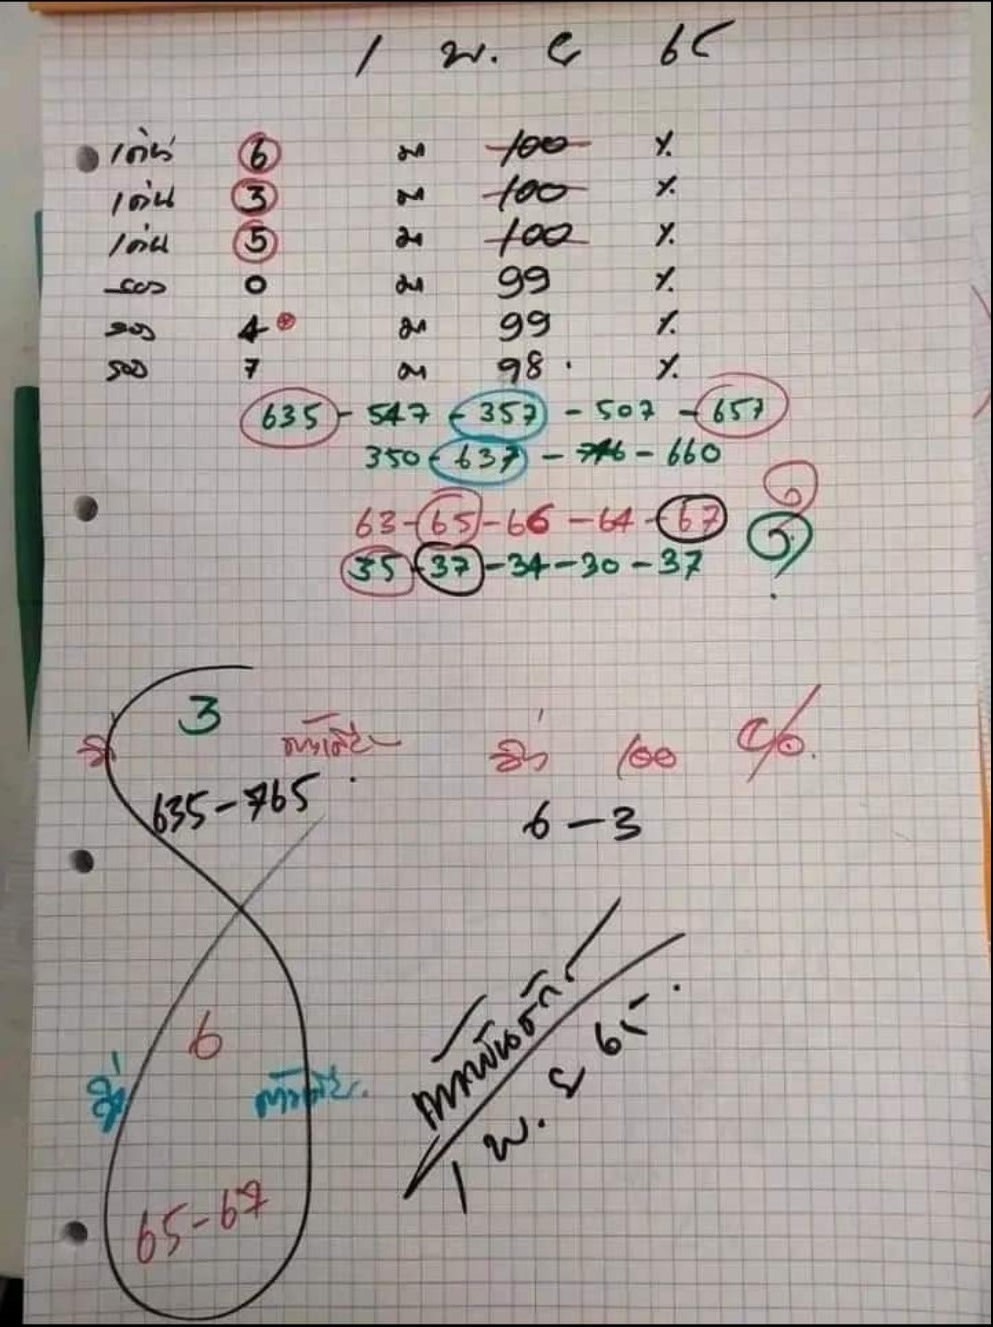 1 พ. ย 65
เด่น 6 มา 100 %
เด่น 3 มา 100 %
เด่น 5 มา 100 %
รอง 0 มา 99 %
รอง 4 มา 99 %
รอง 7 มา 98 %
635 - 547 - 357 - 507 - 657
350 - 637 - 746 - 660
63 - 65 - 66 - 64 - 67
35 - 37 - 34 - 30 - 37
3
วิ่ง ตัวเดียว วิ่ง 100 %
635 - 765
6 - 3
6
วิ่ง ตัวเดียว
65 - 67
1 พ. ย 65